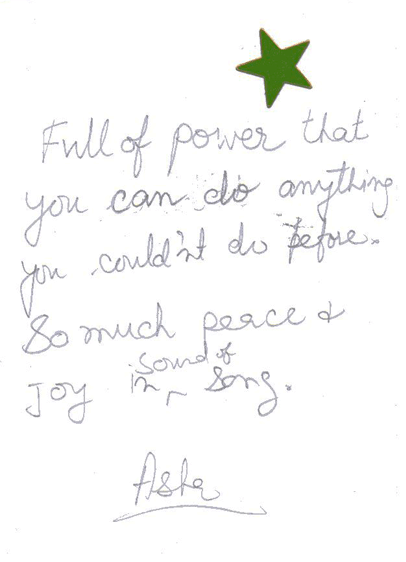 Full of power that
you can do anything
you could'nt do before.
So much peace &
Joy in sound of song.
Asha